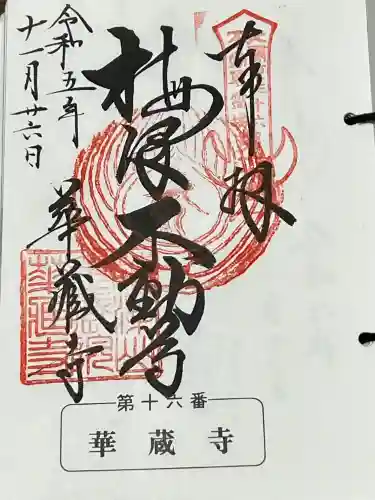 奉拝
波不動尊
華蔵寺
令和五年
十一月廿六日
第十六番
華蔵寺